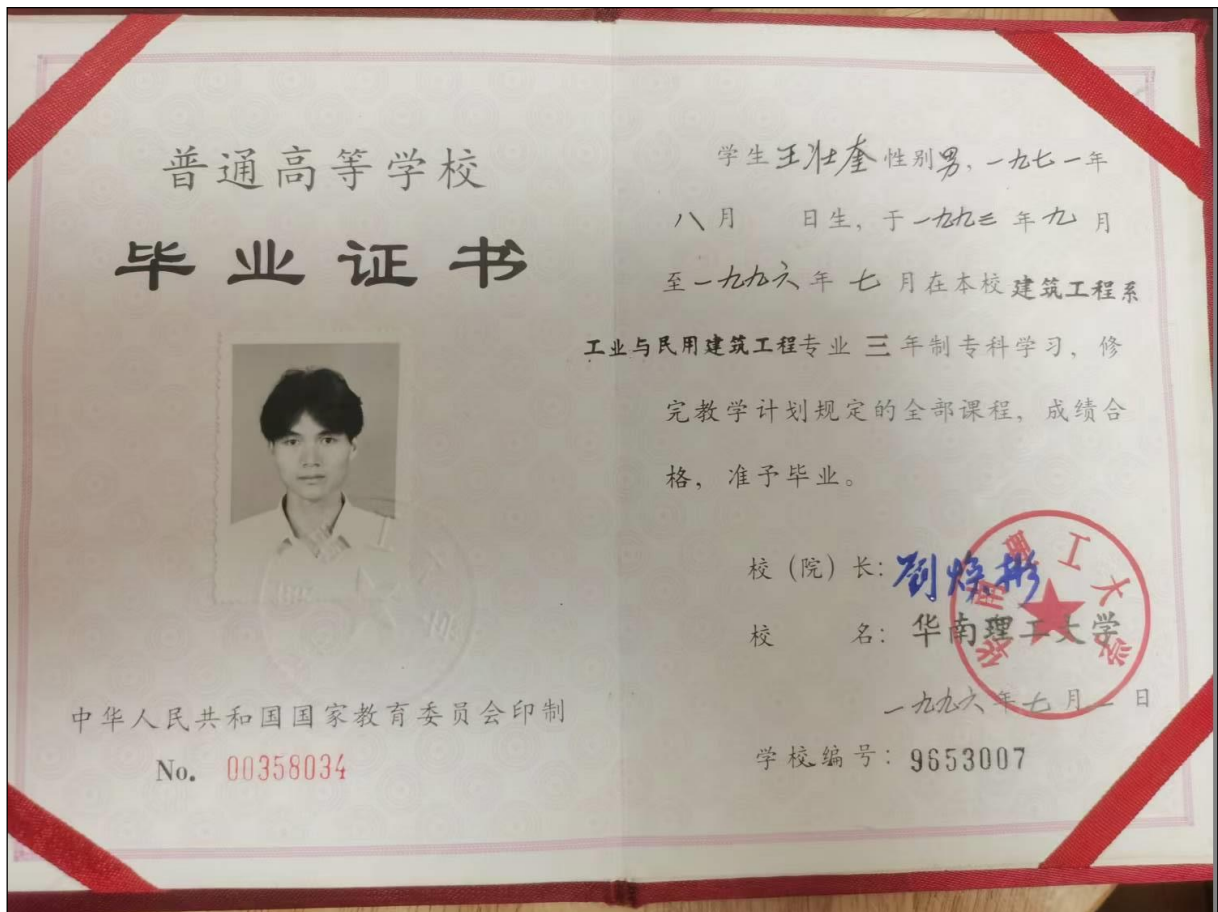 普通高等学校
毕业证书
中华人民共和国国家教育委员会印制
No. 00358034
学生王壮奎性别男，一九七一年
八月 日生，于一九九三年九月
至一九九六年七月在本校建筑工程系
工业与民用建筑工程专业三年制专科学习，修
完教学计划规定的全部课程，成绩合
格，准予毕业。
校（院）长：刘焕彬
校 名：华南理工大学
华南理工大学
一九九六年七月一日
学校编号：9653007